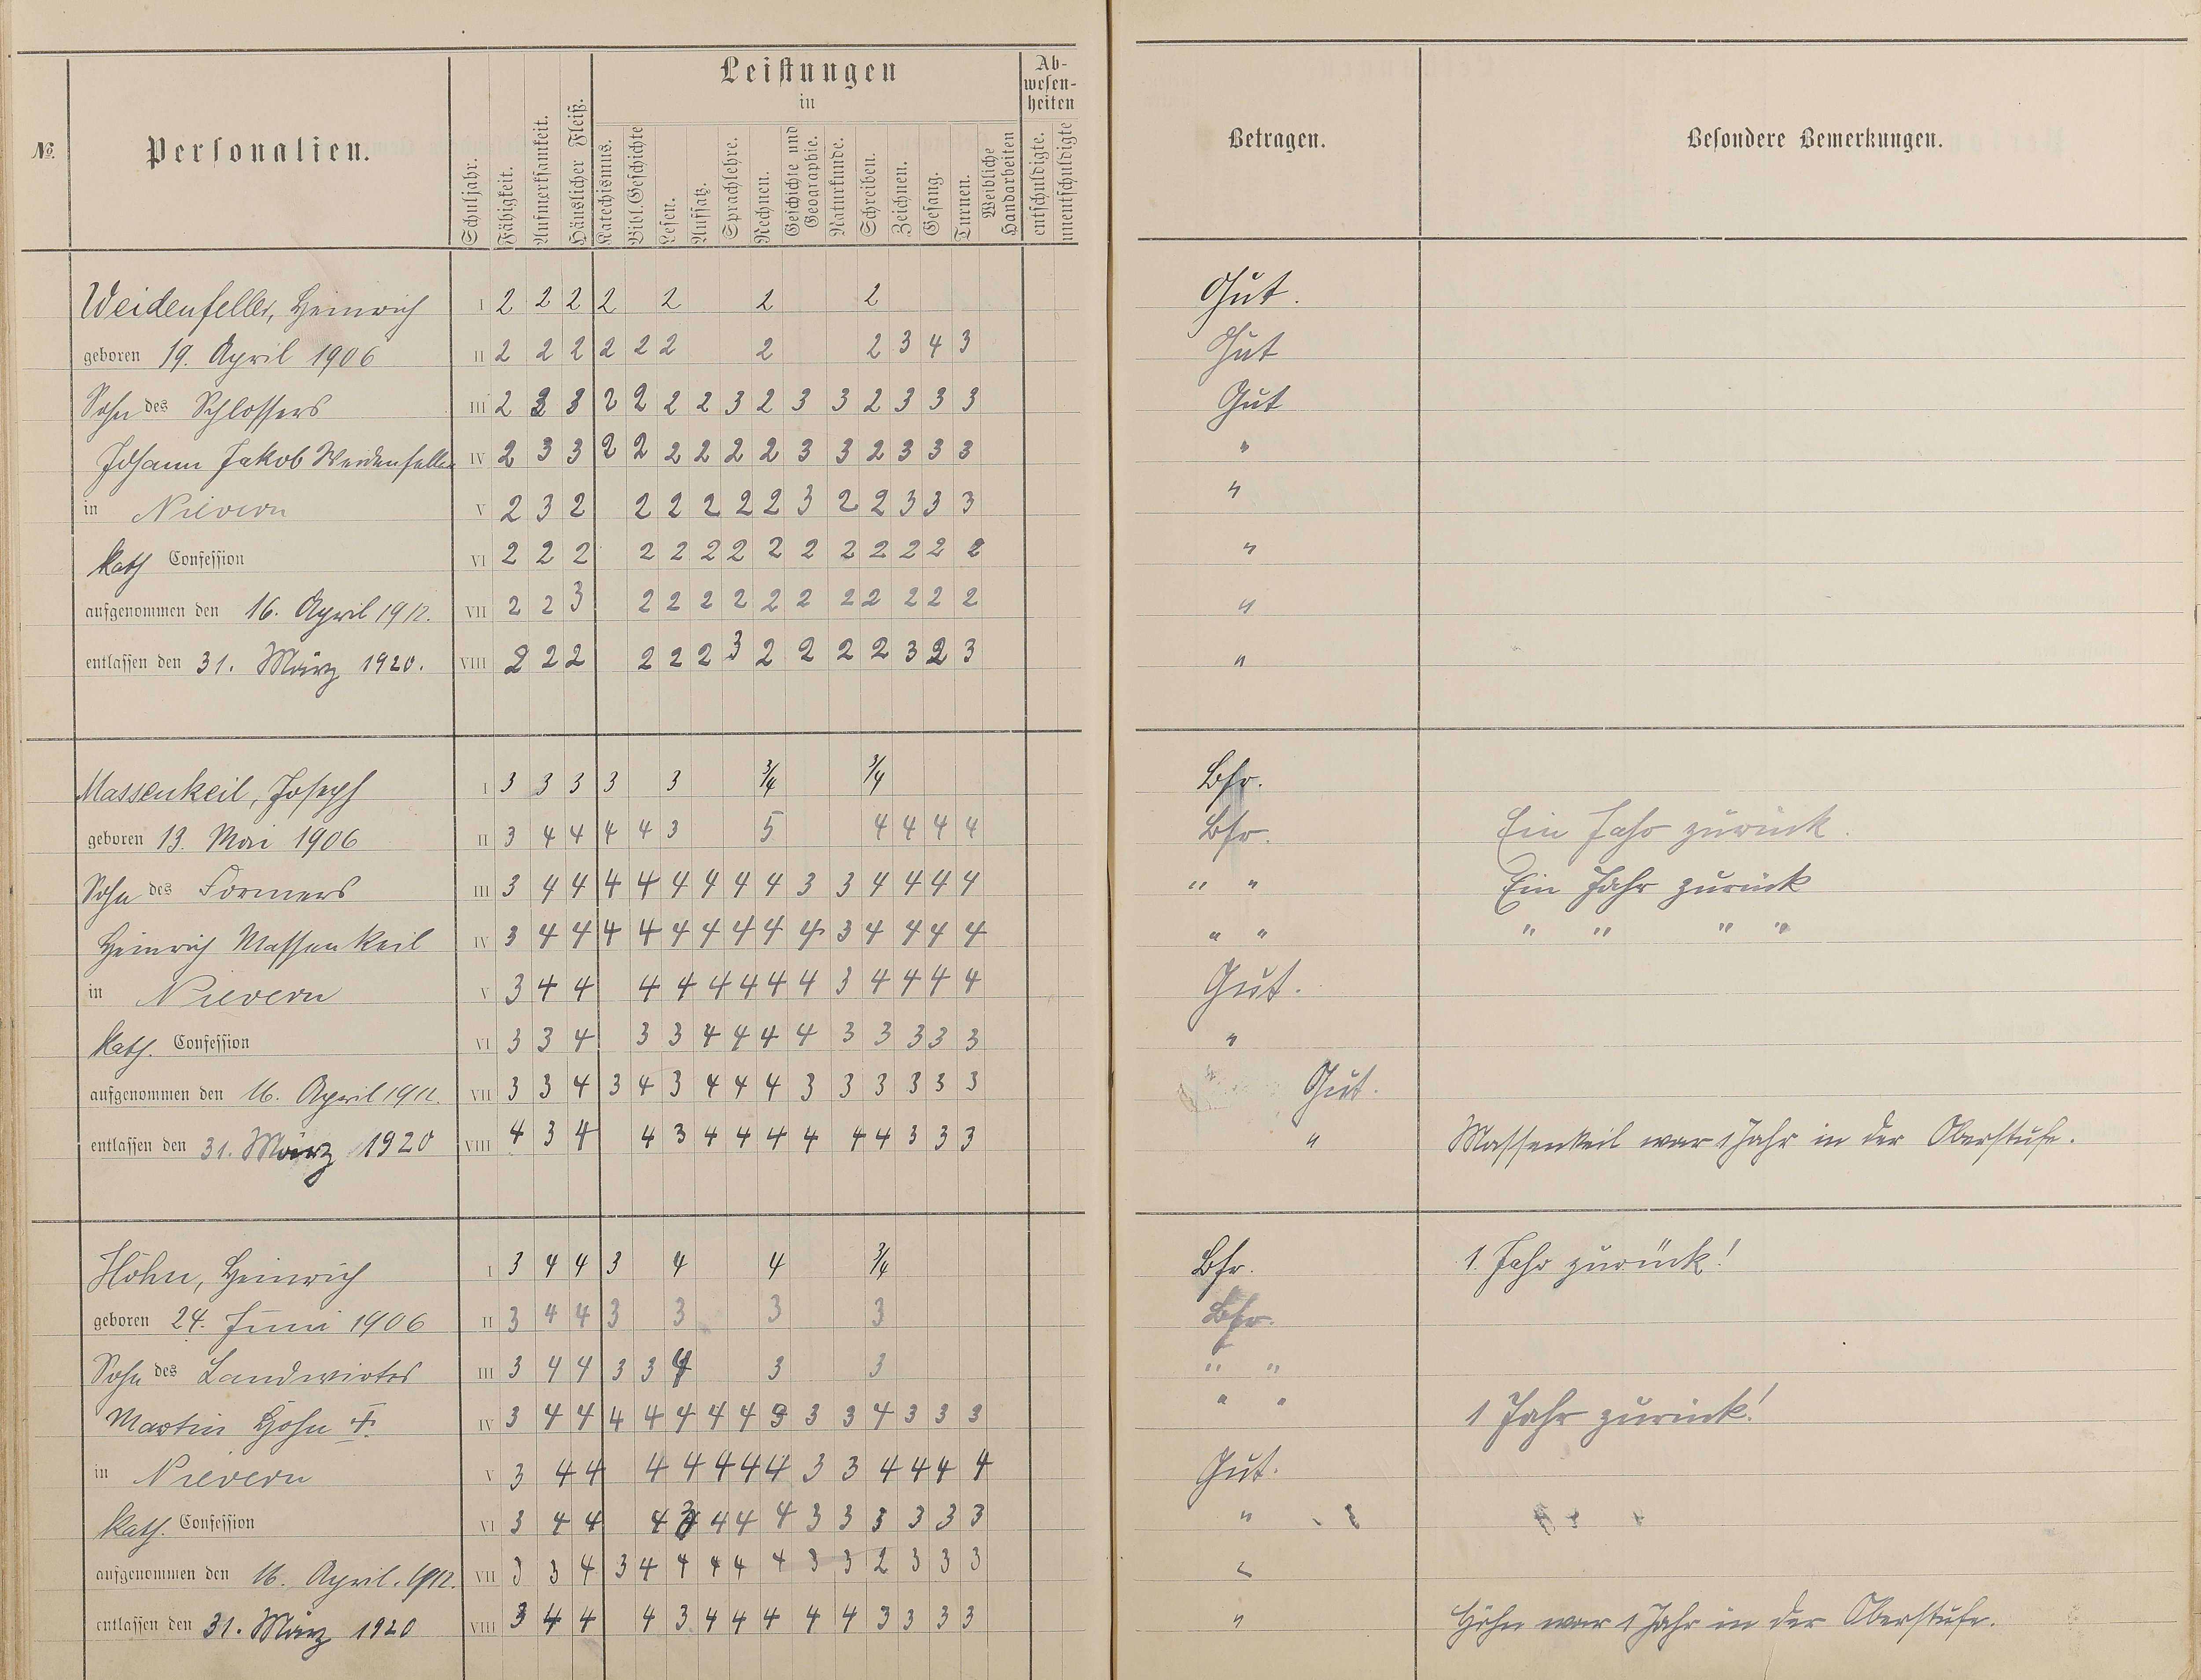 №.
Personalien.
Schuljahr.
Fähigkeit.
Aufmerksamkeit.
Häuslicher Fleiß.
Leistungen
in
Katechismus.
Bibl. Geschichte
Lesen.
Aufsatz.
Sprachlehre.
Rechnen.
Geschichte und Geographie.
Naturkunde.
Schreiben.
Zeichnen.
Gesang.
Turnen.
Weibliche Handarbeiten
Ab-
wesen-
heiten
entschuldigte.
unentschuldigte
Betragen.
Besondere Bemerkungen.
Weidenfeller, Heinrich I 2 2 2 2 2 2 2 Gut.
geboren 19. April 1906 II 2 2 2 2 2 2 2 2 3 4 3 Gut
Sohn des Schlossers III 2 3 3 2 2 2 2 3 2 3 3 2 3 3 3 Gut
Johann Jakob Weidenfeller IV 2 3 3 2 2 2 2 2 2 3 3 2 3 3 3 "
in Nievern V 2 3 2 2 2 2 2 2 3 2 2 3 3 3 "
kath Confession VI 2 2 2 2 2 2 2 2 2 2 2 2 2 2 "
aufgenommen den 16. April 1912. VII 2 2 3 2 2 2 2 2 2 2 2 2 2 2 "
entlassen den 31. März 1920. VIII 2 2 2 2 2 2 3 2 2 2 2 3 2 3 "
Massenkeil, Joseph I 3 3 3 3 3 3/4 3/4 Bfr.
geboren 13. Mai 1906 II 3 4 4 4 4 3 5 4 4 4 4 Bfr. Ein Jahr zurück.
Sohn des Formers III 3 4 4 4 4 4 4 4 4 3 3 4 4 4 4 " " Ein Jahr zurück
Heinrich Massenkeil IV 3 4 4 4 4 4 4 4 4 4 3 4 4 4 4 " " " " " "
in Nievern V 3 4 4 4 4 4 4 4 4 3 4 4 4 4 Gut.
kath. Confession VI 3 3 4 3 3 4 4 4 4 3 3 3 3 3 "
aufgenommen den 16. April 1912. VII 3 3 4 3 4 3 4 4 4 3 3 3 3 3 3 Gut.
entlassen den 31. März 1920 VIII 4 3 4 4 3 4 4 4 4 4 4 3 3 3 " Massenkeil war 1 Jahr in der Oberstufe.
Höhn, Heinrich I 3 4 4 3 4 4 3/4 Bfr. 1. Jahr zurück!
geboren 24. Juni 1906 II 3 4 4 3 3 3 3 Bfr.
Sohn des Landwirtes III 3 4 4 3 3 4 3 3 " "
Martin Höhn I. IV 3 4 4 4 4 4 4 4 3 3 3 4 3 3 3 " " 1 Jahr zurück!
in Nievern V 3 4 4 4 4 4 4 4 3 3 4 4 4 4 Gut.
kath. Confession VI 3 4 4 4 3 4 4 4 3 3 3 3 3 3 "
aufgenommen den 16. April. 1912. VII 3 3 4 3 4 4 4 4 4 3 3 2 3 3 3 "
entlassen den 31. März 1920 VIII 3 4 4 4 3 4 4 4 4 4 3 3 3 3 " Höhn war 1 Jahr in der Oberstufe.